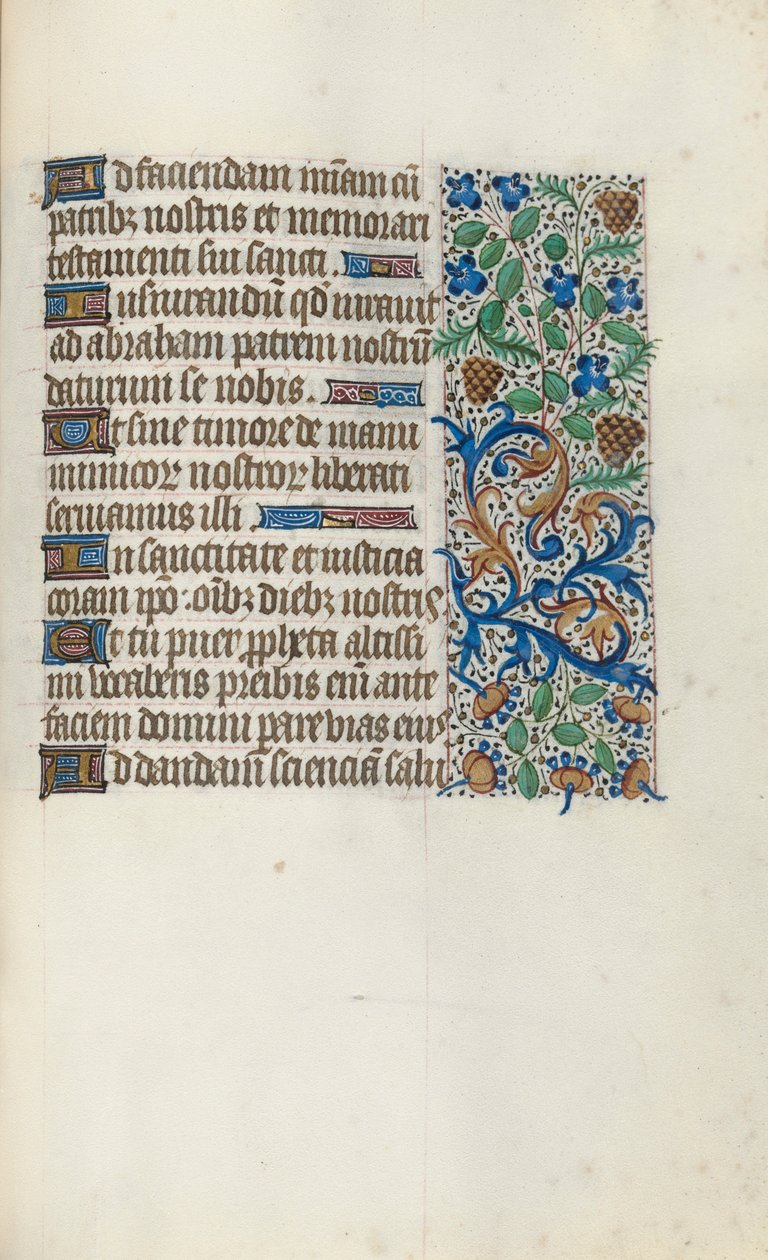 Ad faciendam mīam cū
patribꝫ nostris et memorari
testamenti sui sancti.
Iusiurandū qd̄ iurauit
ad abraham patrem nostrū
daturum se nobis.
Ut sine timore de manu
inimicoꝝ nostroꝝ liberati
seruiamus illi.
In sanctitate et iusticia
coram ipō : oībꝫ diebꝫ nostris.
Et tu puer ꝓpheta altissi
mi vocaberis preibis eni͂ ante
faciem domini pare vias eius
Ad dandam scienciā salu